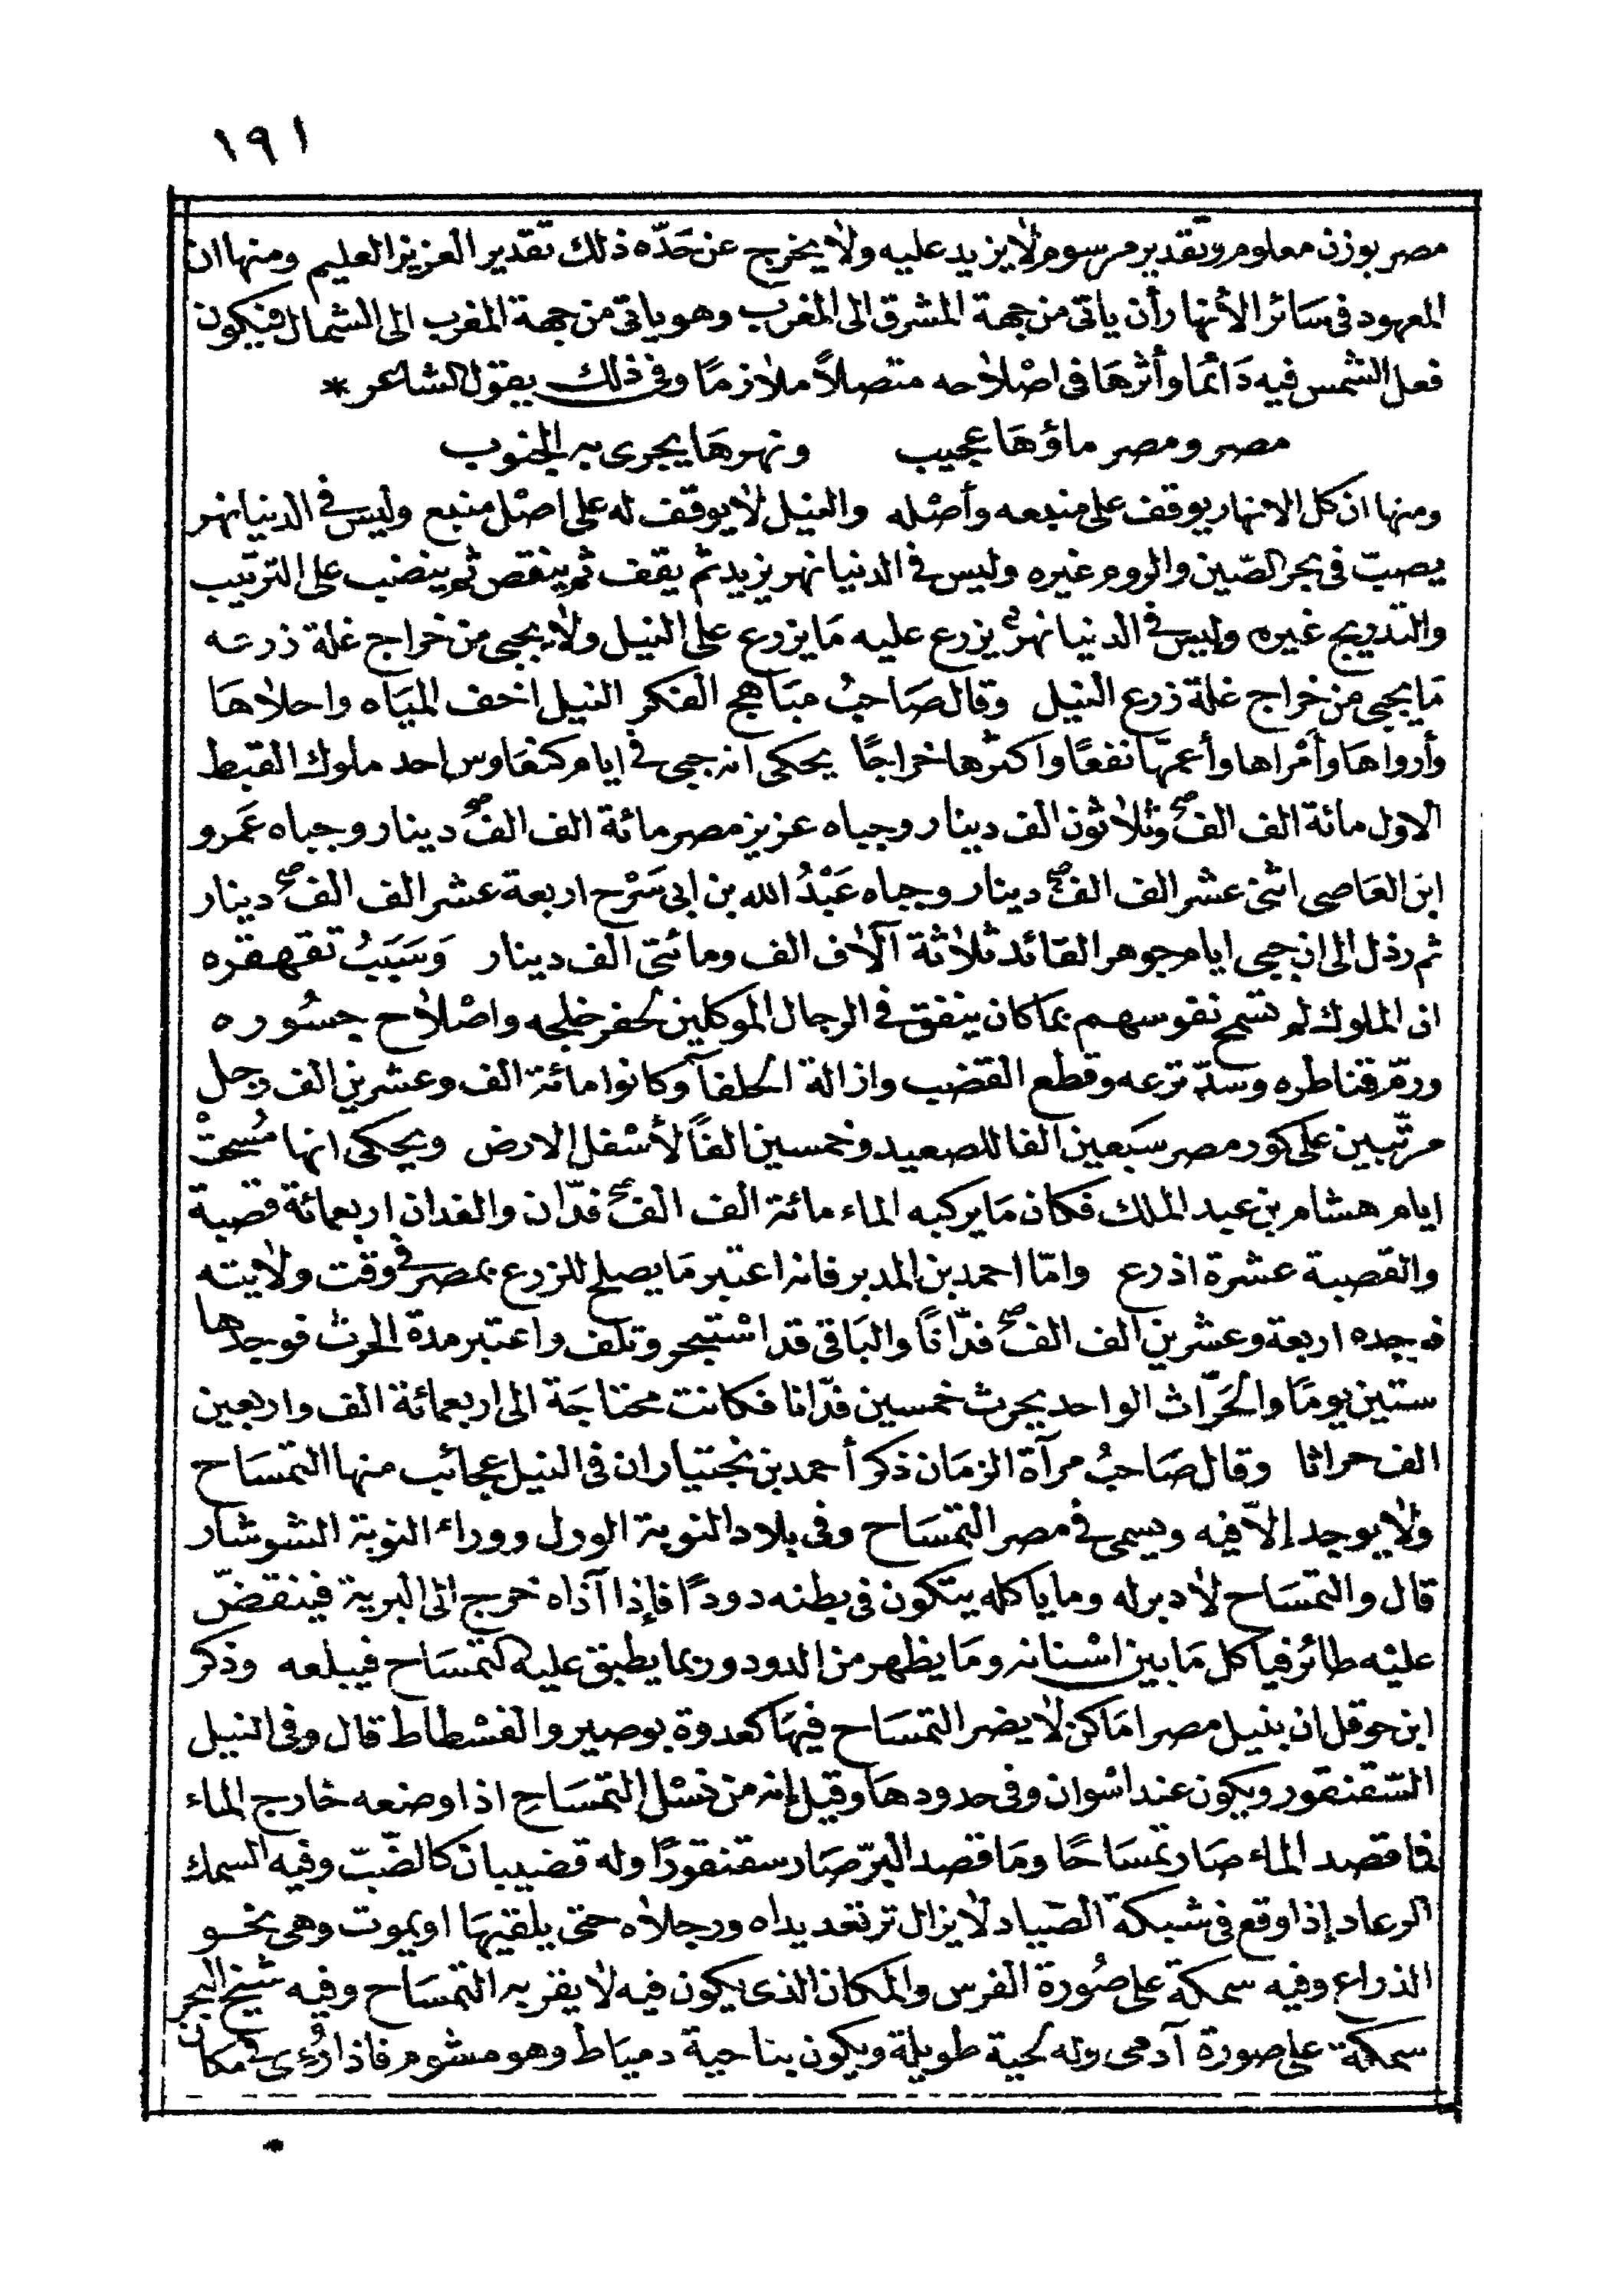 ١٩١
مصر بوزن معلوم وتقدير مرسوم لا يزيد عليه ولا يخرج عن حَدّه ذلك تقدير العزيز العليم ومنها ان
المعهود فى سَائر الأنهار أن ياتى من جهة المشرق الى المغرب وهو ياتى من جهة المغرب الى الشمال فيكون
فعل الشمس فيه دَائمًا وأثرهَا فى اصْلاحه متصلاً ملازمًا وفى ذلك يقول الشاعر *
مصر ومصر ماؤهَا عجيب ونهرهَا يجرى به الجنوب
ومنها ان كل الانهار يوقف على منبعه وأصْله والنيل لا يوقف له على اصْل منبع وليس فى الدنيا نهر
يصبّ فى بحر الصّين والروم غيره وليس فى الدنيا نهر يزيد ثم يقف ثم ينقص ثم ينضب على الترتيب
والتدريج غيره وليس فى الدنيا نهرٌ يزرع عليه مَا يزرع على النيل ولا يجبى من خراج غلة زرعه
مَا يجبى من خراج غلة زرع النيل وقال صَاحبُ مبَاهج الفكر النيل اخف الميَاه واحلاهَا
وأرواهَا وأمْراها وأعمّهَا نفعًا واكثرها خراجًا يحكى انه جبى فى ايام كنعَاوس احد ملوك القبط
الاول مائة الف الف وثلاثون الف دينار وجباه عزيز مصر مائة الف الف دينار وجباه عَمرو
ابن العَاصى اثنى عشر الف الف دينار وجباه عَبْدُ الله بن ابى سَرْح اربعة عشر الف الف دينار
ثم رذل الى ان جبى ايام جوهر القائد ثلاثة آلاف الف ومائتى الف دينار وَسَبَبُ تقهقره
ان الملوك لم تسمح نفوسهم بمَا كان ينفق فى الرجال الموكلين لحفر خلجه واصْلاح جسُوره
ورمّ قناطره وسدّ ترعه وقطع القضب وازالة الحلفآ وكانوا مائة الف وعشرين الف رجل
مرتّبين على كور مصر سَبعين الفا للصعيد وخمسين الفًا لأسْفل الارض ويحكى انها مُسحَتْ
ايام هشام بن عبد الملك فكان مَا يركبه الماء مائة الف الف فدّان والفدان اربعمائة قصبة
والقصبة عشرة اذرع وامّا احمد بن المدبر فانه اعتبر مَا يصلح للزرع بمصر فى وقت ولايته
فوجده اربعة وعشرين الف الف فدّانًا والبَاقى قد اسْتبحر وتلف واعتبر مدة الحرث فوجدها
ستين يومًا والحَرّاث الواحد يحرث خمسين فدّانا فكانت محتاجَة الى اربعمائة الف واربعين
الف حراثا وقال صَاحبُ مرآة الزمَان ذكر أحمد بن بختيار ان فى النيل عجائب منها التمسَاح
ولا يوجد إلاّ فيه ويسمى فى مصر التمسَاح وفى بلاد النوبة الورل ووراء النوبة الشوشار
قال والتمسَاح لا دبر له وما ياكله يتكون فى بطنه دودًا فإذا آذاه خرج الى البرية فينقضّ
عليْه طائر فياكل مَا بين اسْنانه ومَا يظهر من الدود وربما يطبق عليه التمسَاح فيبلعه وذكر
ابن حوقل ان بنيل مصر امَاكن لا يضر التمسَاح فيهَا كعدوة بوصير والفسْطاط قال وفى النيل
السّقنقور ويكون عند اسْوان وفى حدودهَا وقيل إنه من نسْل التمسَاح اذا وضعه خارج الماء
فما قصد الماء صَار تمسَاحًا ومَا قصد البرّ صَار سقنقورًا وله قضيبان كالضّبّ وفيه السمك
الرعاد إذا وقع فى شبكة الصّياد لا يزال ترتعد يداه ورجلاه حتى يلقيهَا او يموت وهى نحو
الذراع وفيه سمكة على صُورة الفرس والمكان الذى يكون فيه لا يقربه التمسَاح وفيه شيخ البحر
سمكة على صورة آدمى وله لحية طويلة ويكون بناحية دميَاط وهو مشوم فاذا رُؤى فى مكان